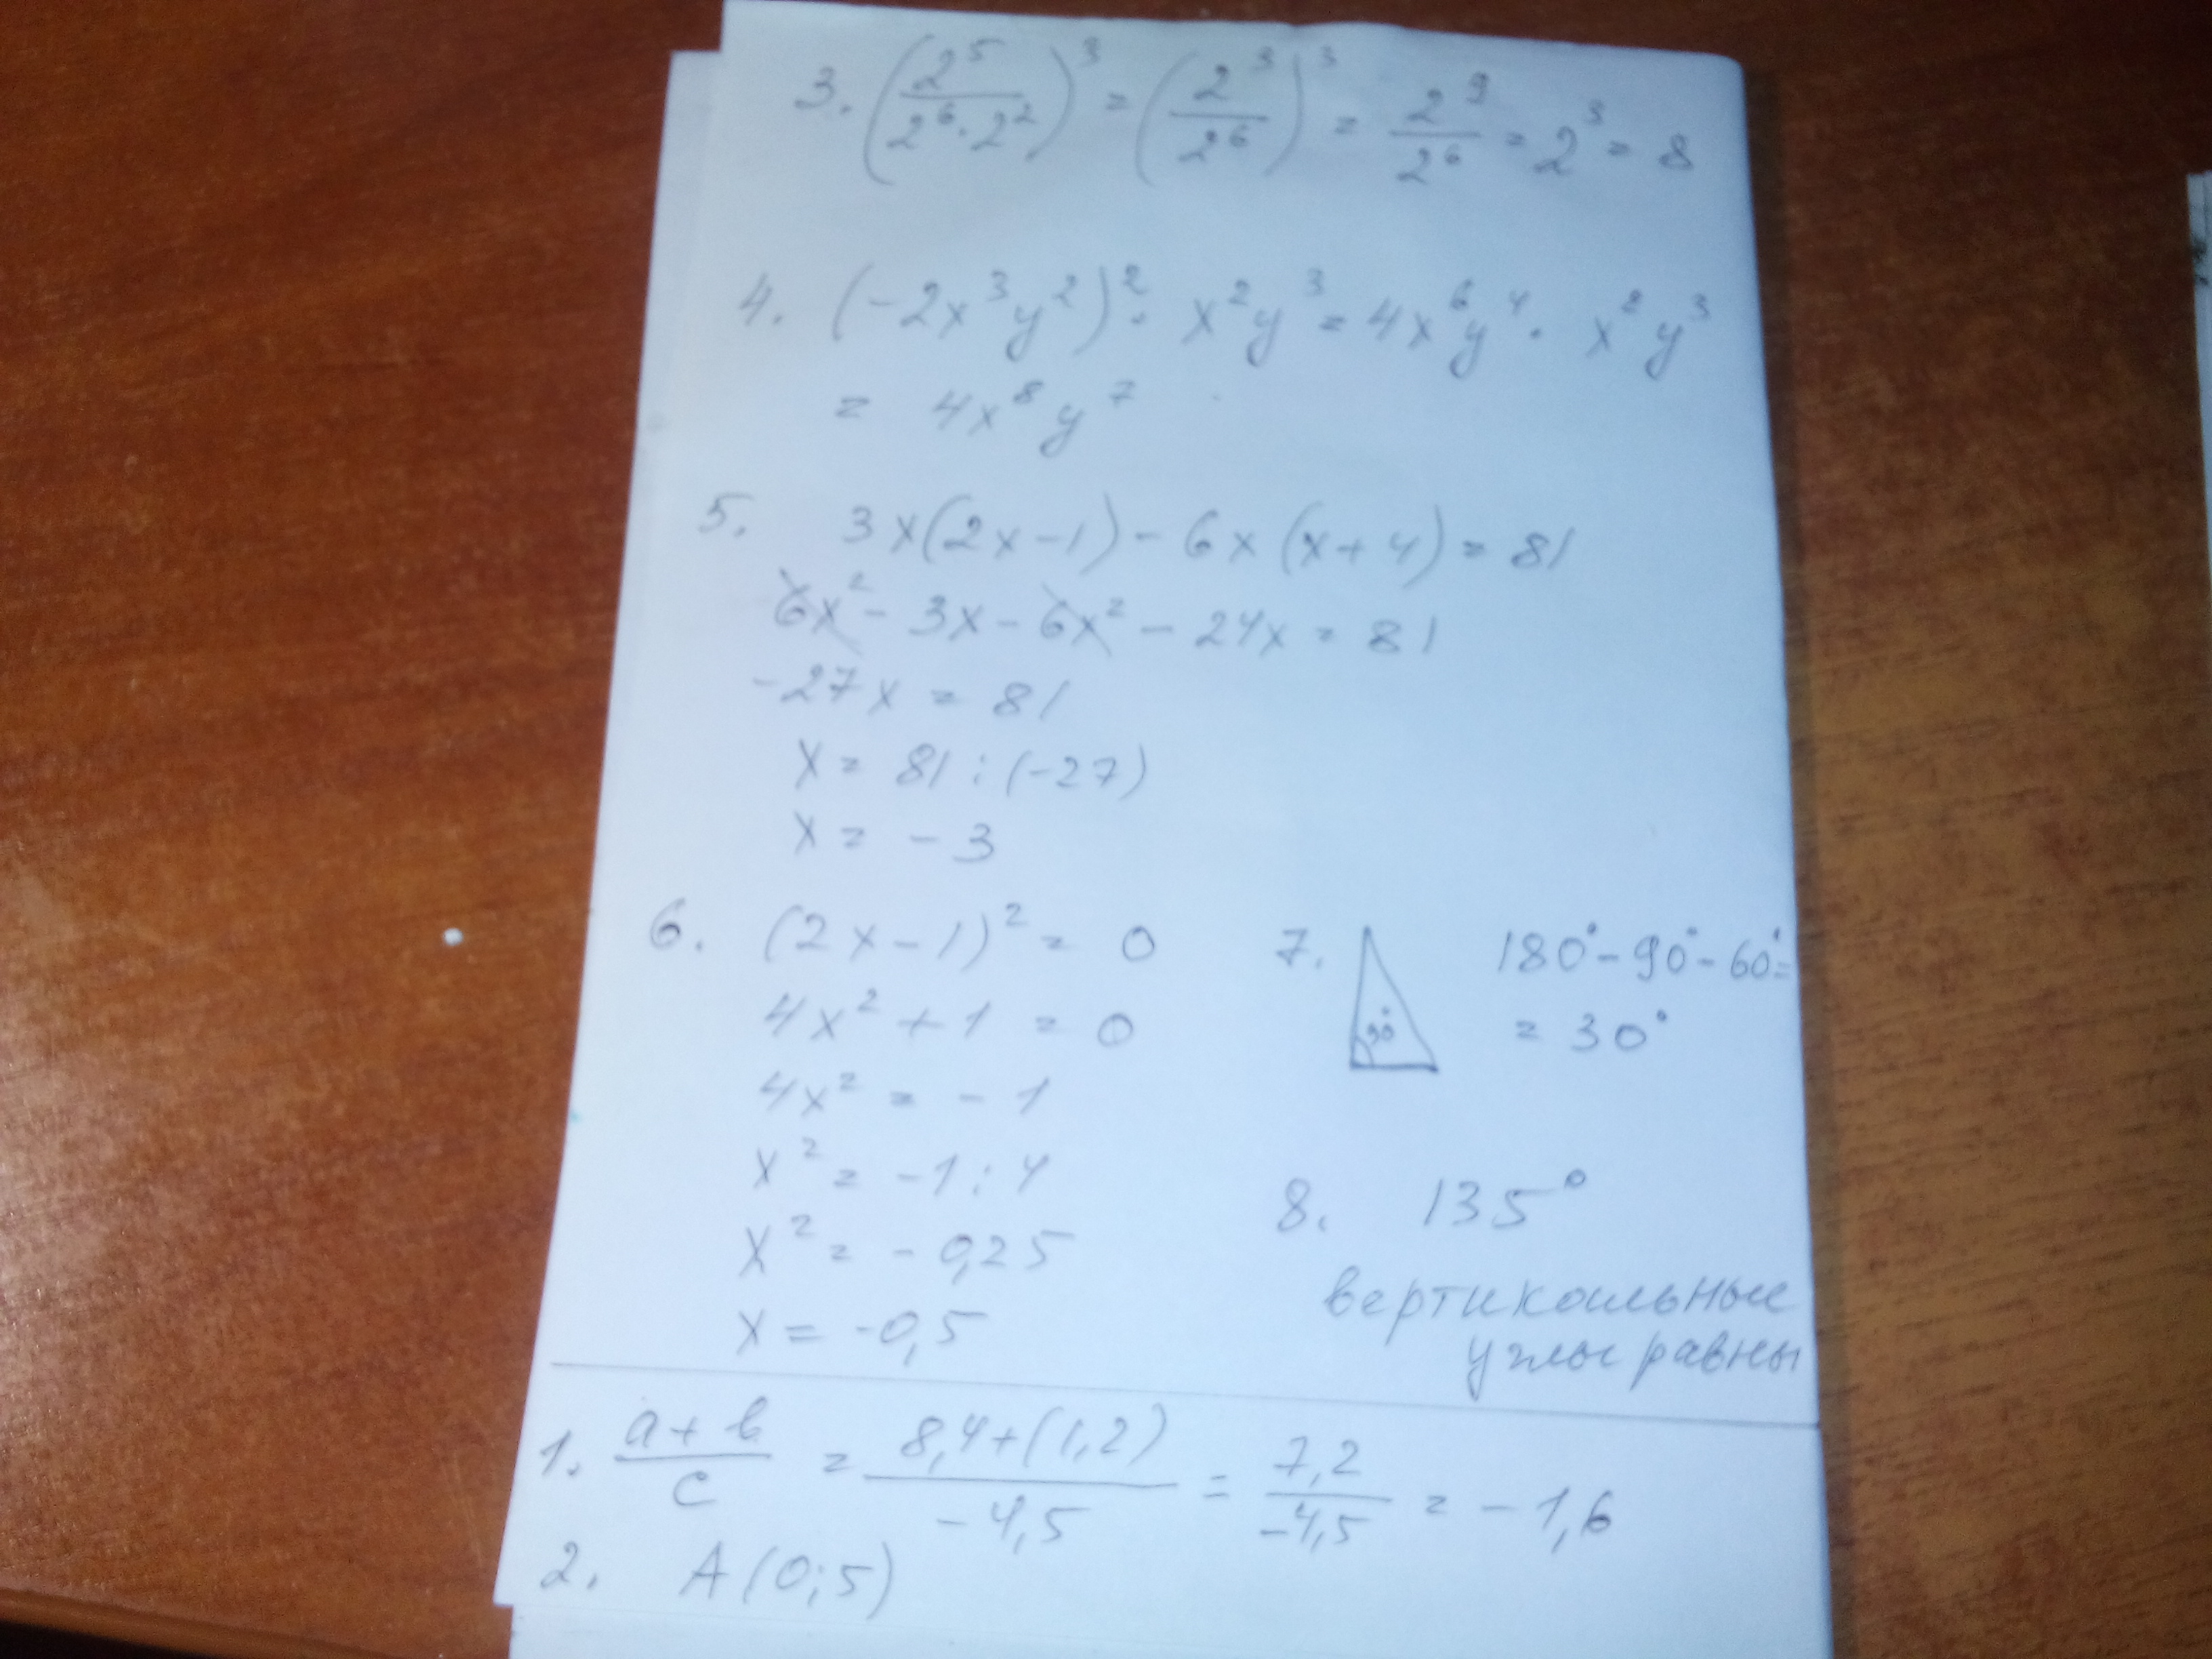 3. (2⁵/(2⁶·2²))³ = (2³/2⁶)³ = 2⁹/2⁶ = 2³ = 8
4. (-2x³y²)²· x²y³ = 4x⁶y⁴· x²y³
= 4x⁸y⁷
5. 3x(2x-1)-6x(x+4)=81
6x²-3x-6x²-24x=81
-27x=81
x=81:(-27)
x=-3
6. (2x-1)²=0
4x²+1=0
4x²=-1
x²=-1:4
x²=-0,25
x=-0,5
7. 180°-90°-60°=
90°
=30°
8. 135°
вертикальные
углы равны
1. (a+b)/c = (8,4+(1,2))/(-4,5) = 7,2/(-4,5) = -1,6
2. A(0;5)